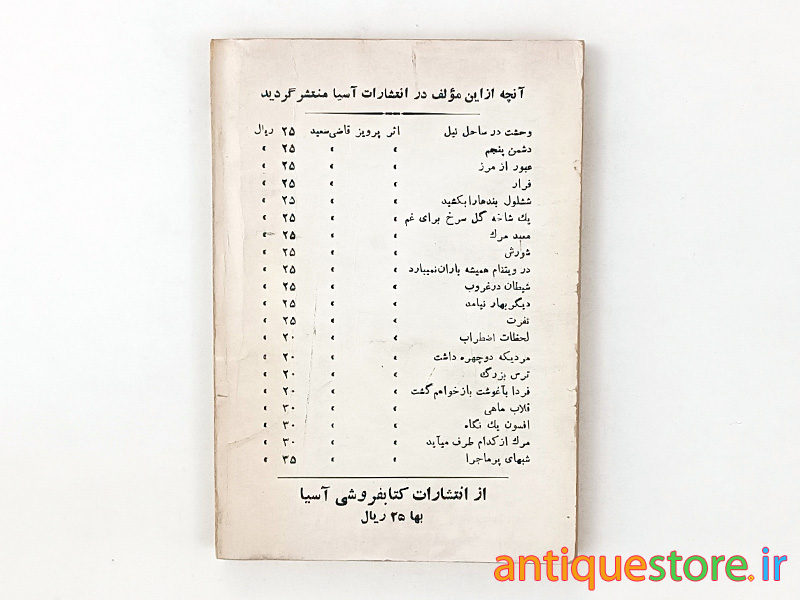 آنچه از این مؤلف در انتشارات آسیا منتشر گردید
وحشت در ساحل نیل اثر پرویز قاضی‌سعید ۲۵ ریال
دشمن پنجم » » ۲۵ »
عبور از مرز » » ۲۵ »
فرار » » ۲۵ »
ششلول بندها را بکشید » » ۲۵ »
یک شاخه گل سرخ برای غم » » ۲۵ »
معبد مرگ » » ۲۵ »
شورش » » ۲۵ »
در ویتنام همیشه باران نمیبارد » » ۲۵ »
شیطان در غروب » » ۲۵ »
دیگر بهار نیامد » » ۲۵ »
نفرت » » ۲۵ »
لحظات اضطراب » » ۲۰ »
مردیکه دو چهره داشت » » ۲۰ »
ترس بزرگ » » ۲۰ »
فردا بآغوشت باز خواهم گشت » » ۲۰ »
قلاب ماهی » » ۳۰ »
افسون یک نگاه » » ۳۰ »
مرگ از کدام طرف میآید » » ۳۰ »
شبهای پر ماجرا » » ۳۵ »
از انتشارات کتابفروشی آسیا
بها ۲۵ ریال
antiquestore.ir